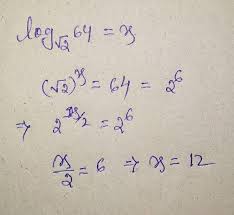 log_√2 64 = x
(√2)^x = 64 = 2^6
⇒ 2^x/2 = 2^6
x/2 = 6 ⇒ x = 12